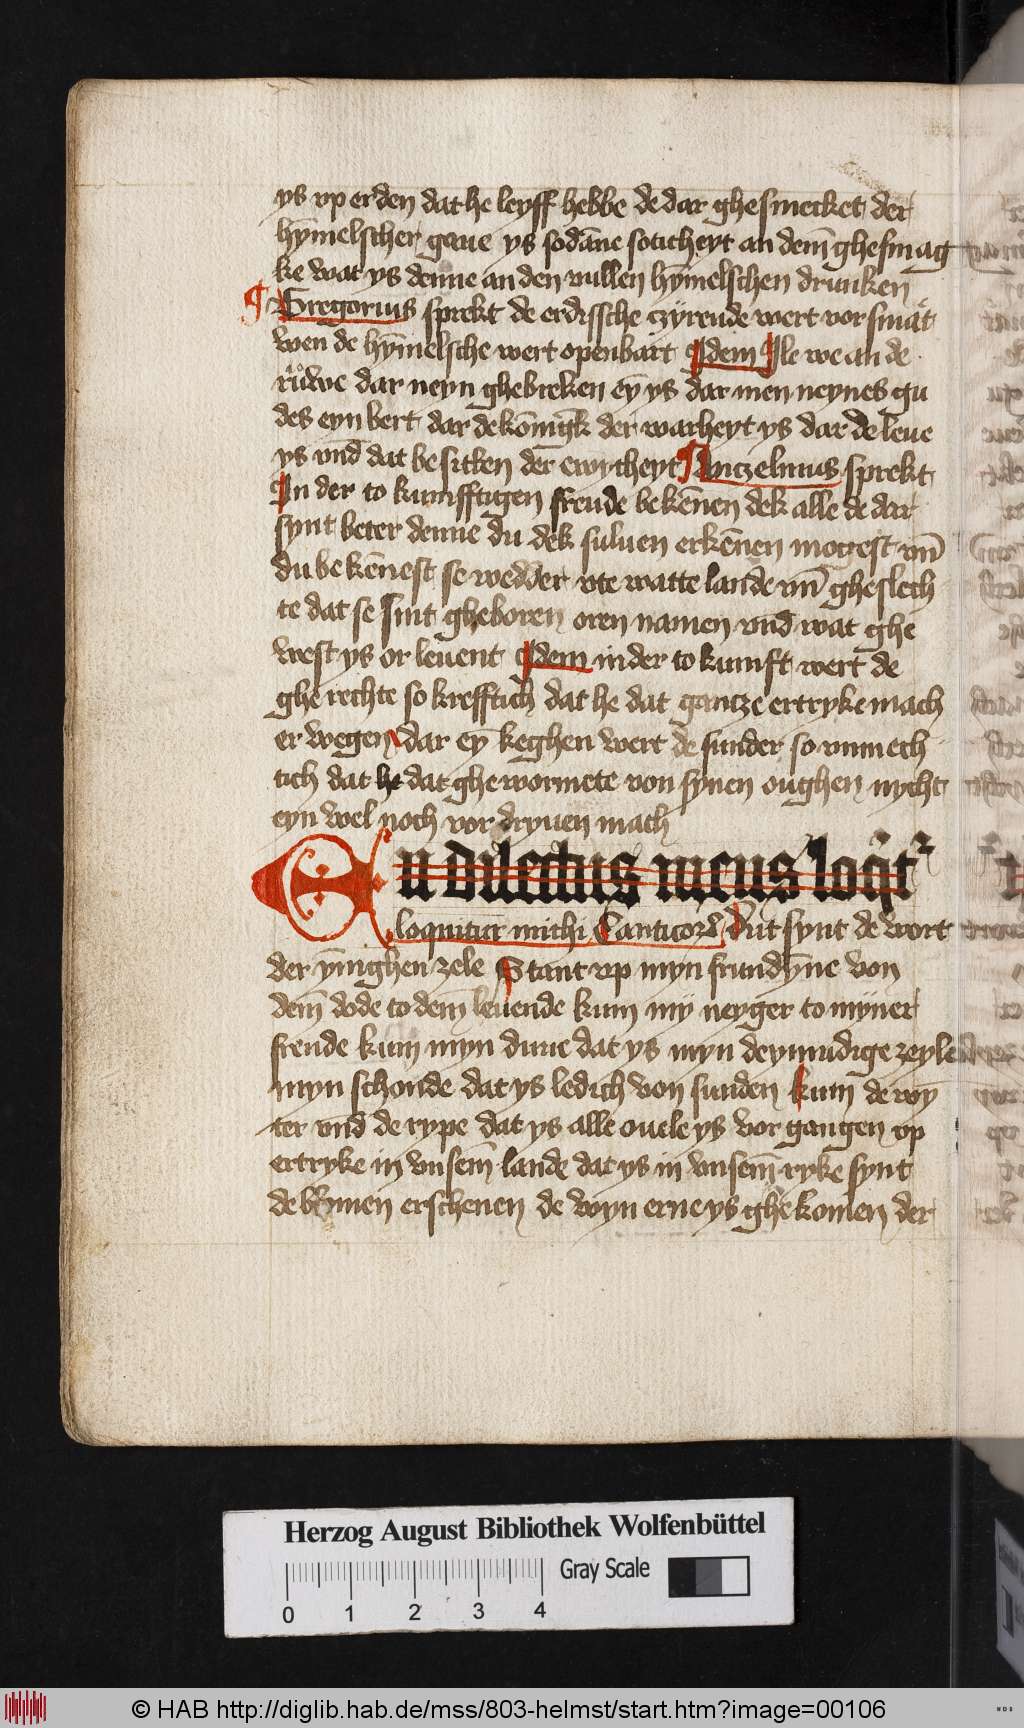 ys vp erden dat he leyff hebbe de dar ghesmecket der
hȳmelscher gaue ys sodāne soticheyt an dem̄ ghesmag
ke wat ys denne an den vullen hȳmelschen drunken
¶ Gregorius sprekt de erdissche czÿrende wert vor smāt
wen de hȳmelsche wert openbart Idem Ile we an de
růwe dar neyn ghebreken eȳ ys dar men neynes gu
des eyn bert dar de kōnigk der warheyt ys dar de leue
ys vnd̄ dat besitten der ewicheyt Anczelmus sprekt
In der to kumfftigen freude bekēnen dek alle de dar
synt beter denne du dek suluen erkēnen mogest vn̄
du bekēnest se wedder vte watte lande vn̄ gheslech
te dat se sint gheboren oren namen vnd̄ wat ghe
west ys or leuent Idem in der to kumft wert de
ghe rechte so krefftich dat he dat gantze ertryke mach
er wegen dar eȳ keghen wert de sunder so vnmech
tich dat he dat ghe wormete von synen oughen nycht
eyn wel noch vor dryuen mach
En dilectus meus loq̄t᷑
loquitur michi Canticor̄ Dut synt de wort
der ȳnighen zele Stant vp myn frundȳne von
dem̄ dode to dem̄ leuende kum mÿ neyger to mÿner
freude kum myn duue dat ys myn deymudige zeyle
myn schonde dat ys ledich von sunden kum̄ de wȳ
ter vnd̄ de rype dat ys alle ouele ys vor gangen vp
ertryke in vnsem̄ lande dat ys in vnsem̄ ryke synt
de blomen erschenen de wyn erne ys ghe komen der
Herzog August Bibliothek Wolfenbüttel
Gray Scale
0 1 2 3 4
© HAB http://diglib.hab.de/mss/803-helmst/start.htm?image=00106